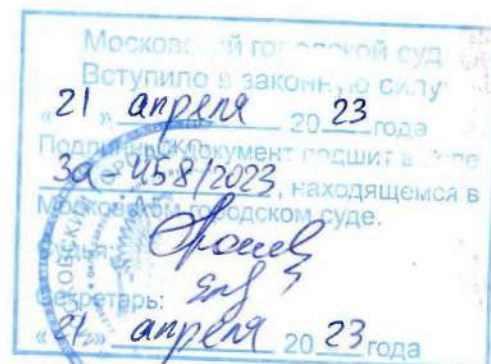 Московский городской суд
Вступило в законную силу
« 21 » апреля 20 23 года
Подлинный документ подшит в деле
3а-458/2023, находящемся в
Московском городском суде.
Судья:
Секретарь:
« 21 » апреля 20 23 года